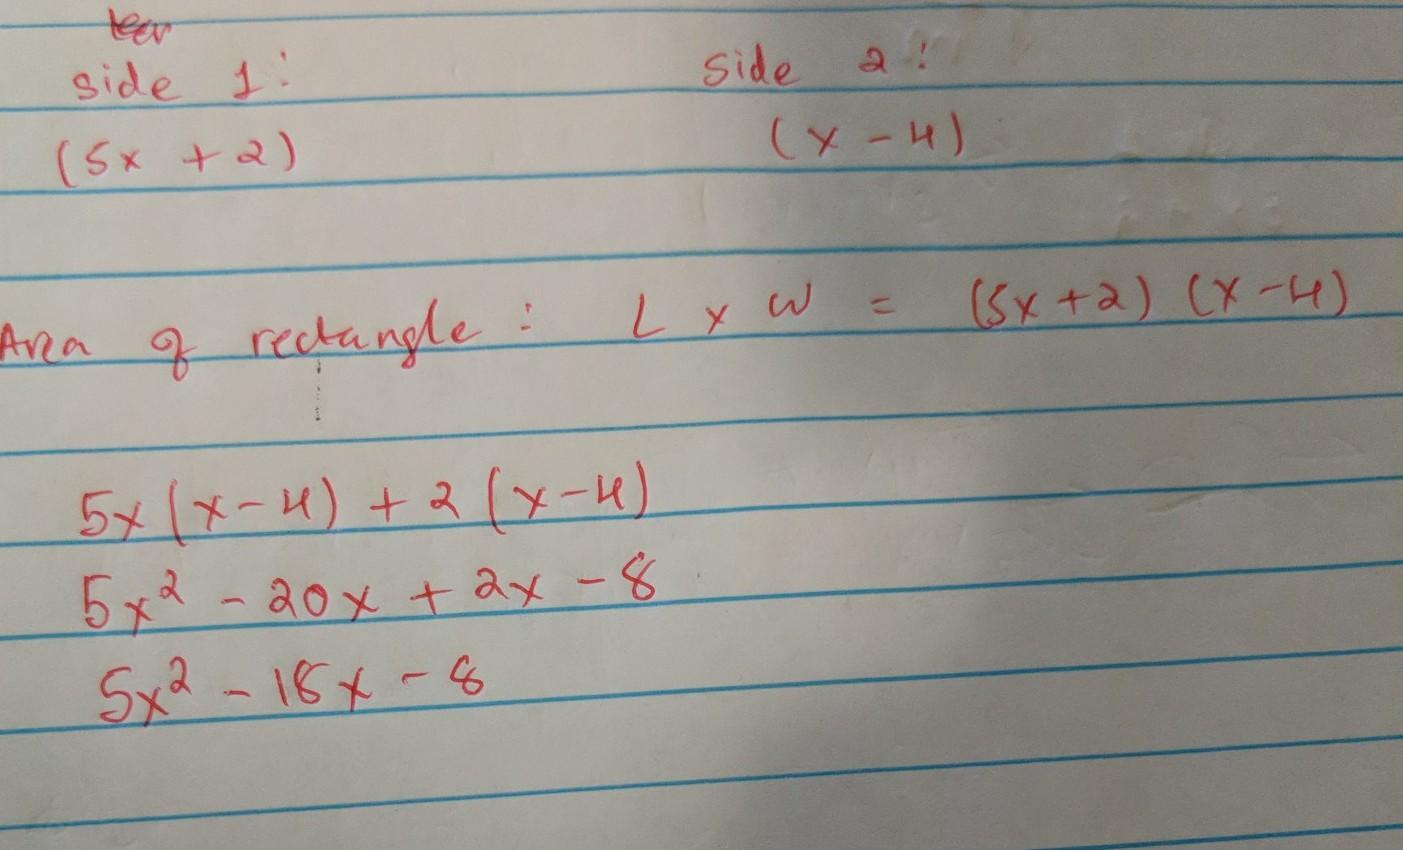 side 1: side 2:
(5x + 2) (x - 4)
Area of rectangle : L x W = (5x + 2) (x - 4)
5x (x - 4) + 2 (x - 4)
5x² - 20x + 2x - 8
5x² - 18x - 8